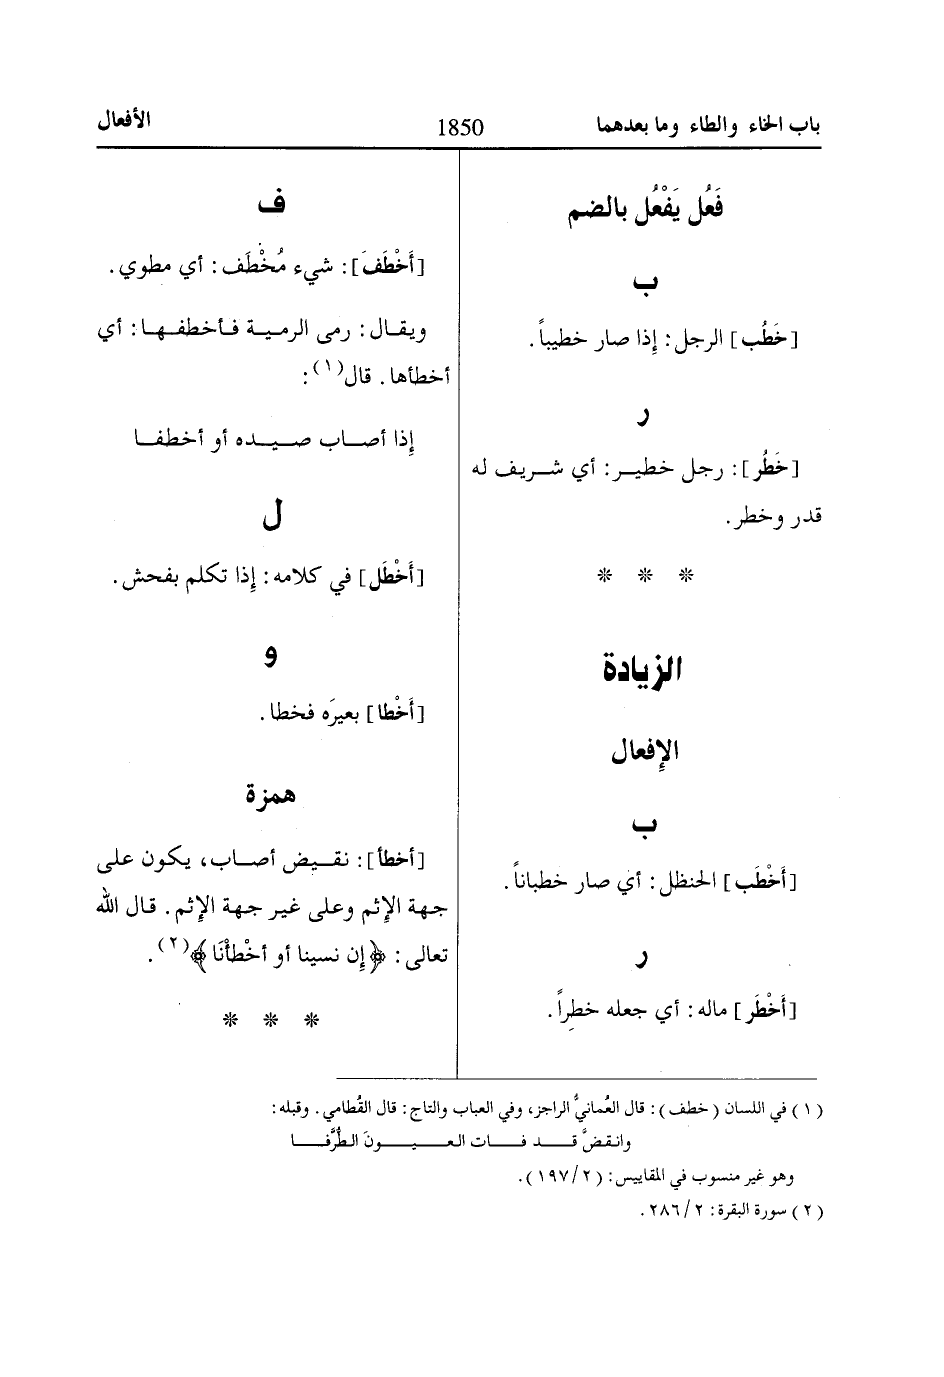 باب الخاء والطاء وما بعدهما
1850
الأفعال
فَعُل يَفْعُل بالضم
ب
[خَطُب] الرجل: إِذا صار خطيباً.
ر
[خَطُر]: رجل خطيـر: أي شـريف له
قدر وخطر.
* * *
الزيادة
الإِفعال
ب
[أَخْطَب] الحنظل: أي صار خطباناً.
ر
[أَخْطَر] ماله: أي جعله خطِراً.
ف
[أَخْطَفَ]: شيء مُخْطَف: أي مطوي.
ويقـال: رمى الرميـة فـأخطفـهـا: أي
أخطأها. قال(١):
إِذا أصـاب صـيـده أو أخطفـا
ل
[أَخْطَل] في كلامه: إِذا تكلم بفحش.
و
[أَخْطا] بعيرَه فخطا.
همزة
[أخطأ]: نقـيض أصـاب، يكون على
جهة الإِثم وعلى غير جهة الإِثم. قال الله
تعالى: ﴿إِن نسينا أو أخْطأْنَا﴾(٢).
* * *
(١) في اللسان (خطف): قال العُمانيُّ الراجز، وفي العباب والتاج: قال القُطامي. وقبله:
وانقضَّ قـد فـات العـيـونَ الطُّرَّفـا
وهو غير منسوب في المقاييس: (٢/١٩٧).
(٢) سورة البقرة: ٢/٢٨٦.